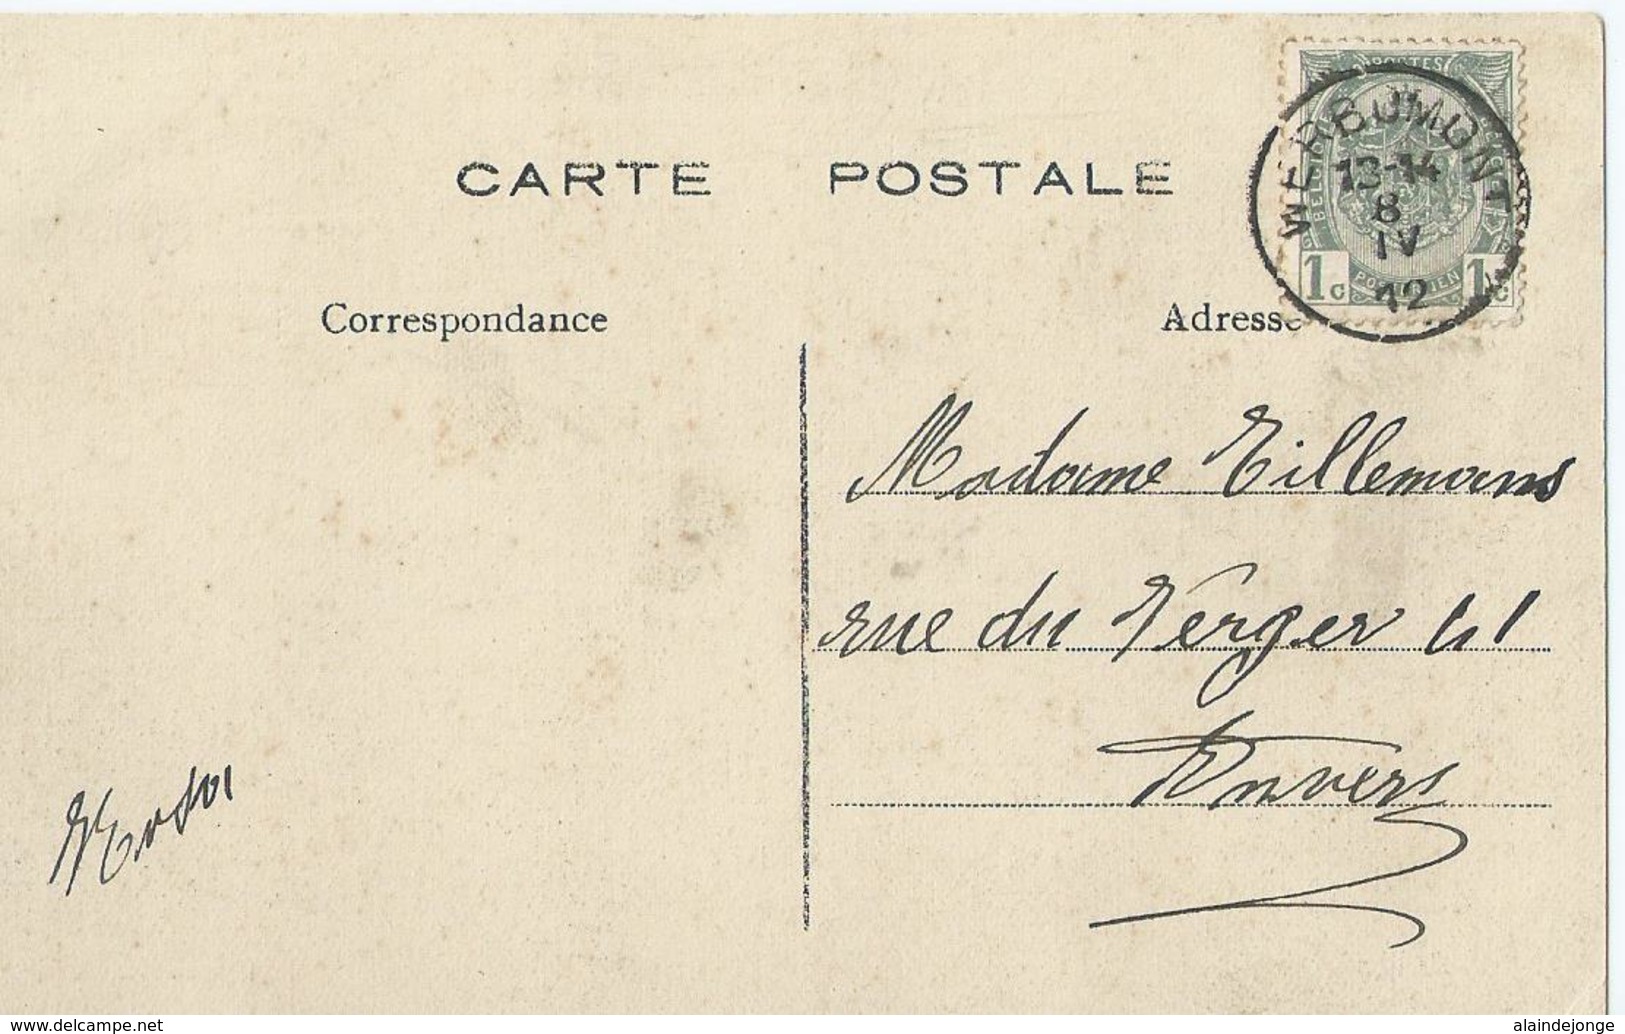 CARTE POSTALE
POSTES
WERBOMONT
13-14
8
IV
12
1c 1c
Correspondance
Adresse
Madame Tillemans
rue du Verger 41
Anvers
www.delcampe.net
alaindejonge